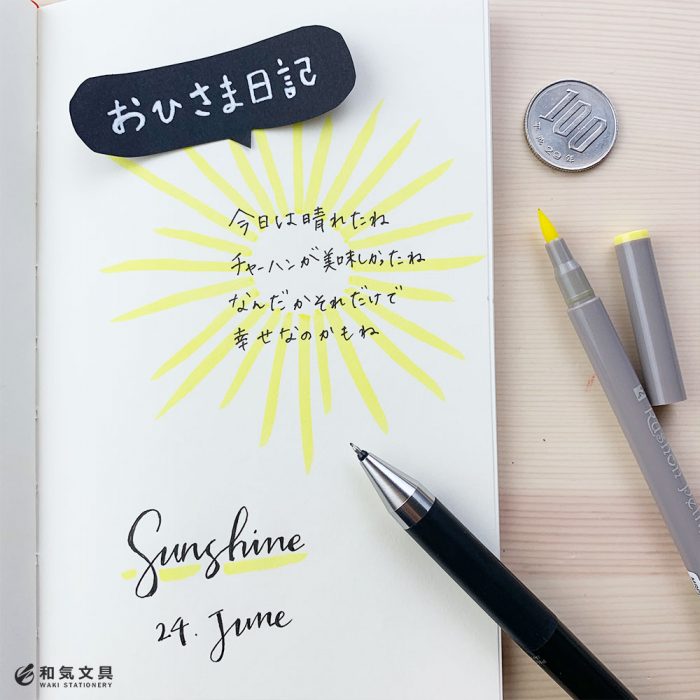 おひさま日記
今日は晴れたね
チャーハンが美味しかったね
なんだかそれだけで
幸せなのかもね
Sunshine
24. June
100
平成29年
和気文具
WAKI STATIONERY